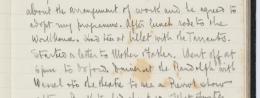 about the arrangement of work and he agreed to
adopt my programme. After lunch rode to the
Workhouse. Had tea at billet with the Tarrants.
Started a letter to Mother & Father. Went off at
6pm to Oxford. Dinner at the Randolph with
to the theatre to see a Pierrot show